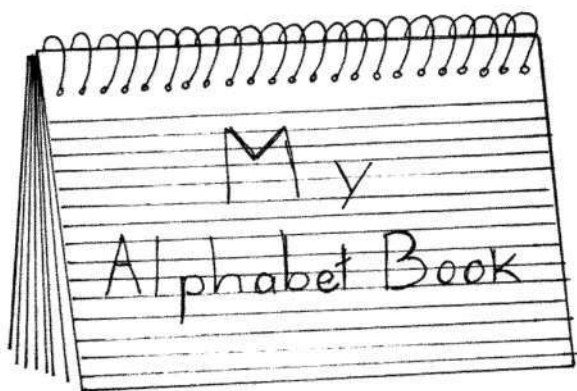 My
Alphabet Book